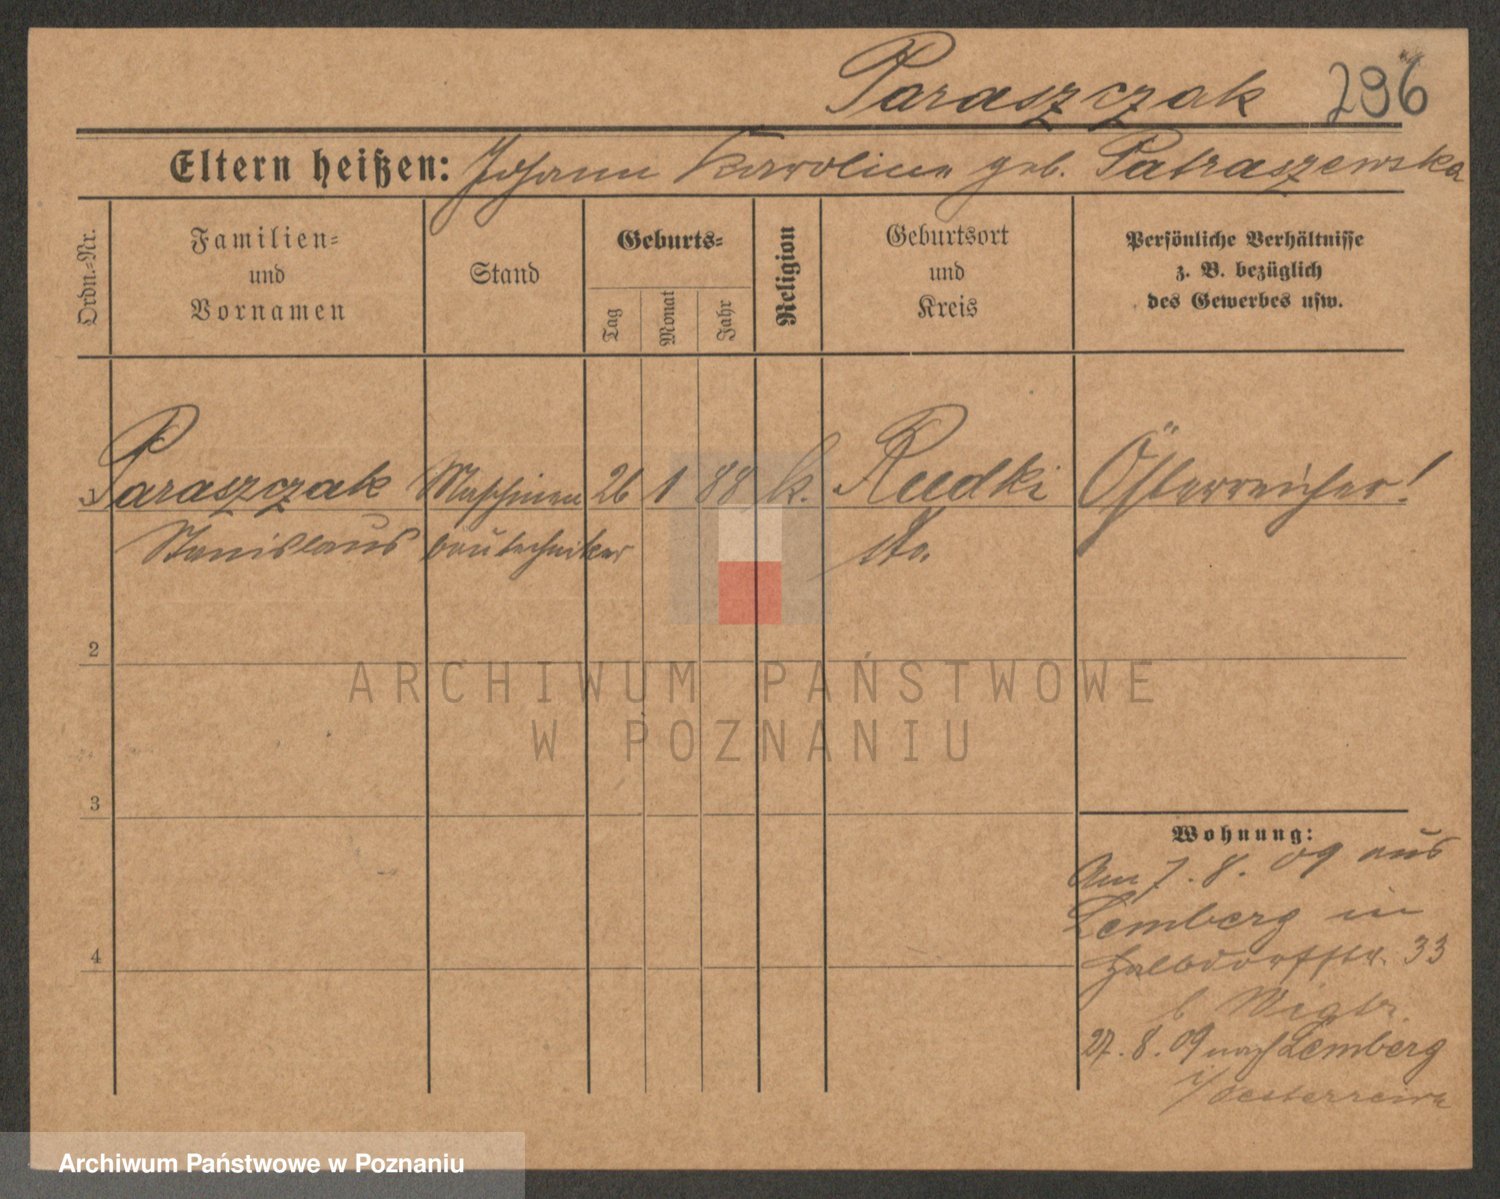 Paraszczak 296
Eltern heißen: Johann Karoline geb. Patraszewska
Ordn.-Nr.
Familien-
und
Vornamen
Stand
Geburts-
Tag
Monat
Jahr
Religion
Geburtsort
und
Kreis
Persönliche Verhältnisse
z. B. bezüglich
des Gewerbes usw.
1 Paraszczak Maschinen 26 1 88 k. Rudki Österreicher!
Stanislaus bautechniker dto.
2
3
4
Wohnung:
Am 7. 8. 09 aus
Lemberg in
Halbdorfstr. 33
b
27. 8. 09 nach Lemberg
i/Oesterreich
ARCHIWUM PAŃSTWOWE
W POZNANIU
Archiwum Państwowe w Poznaniu